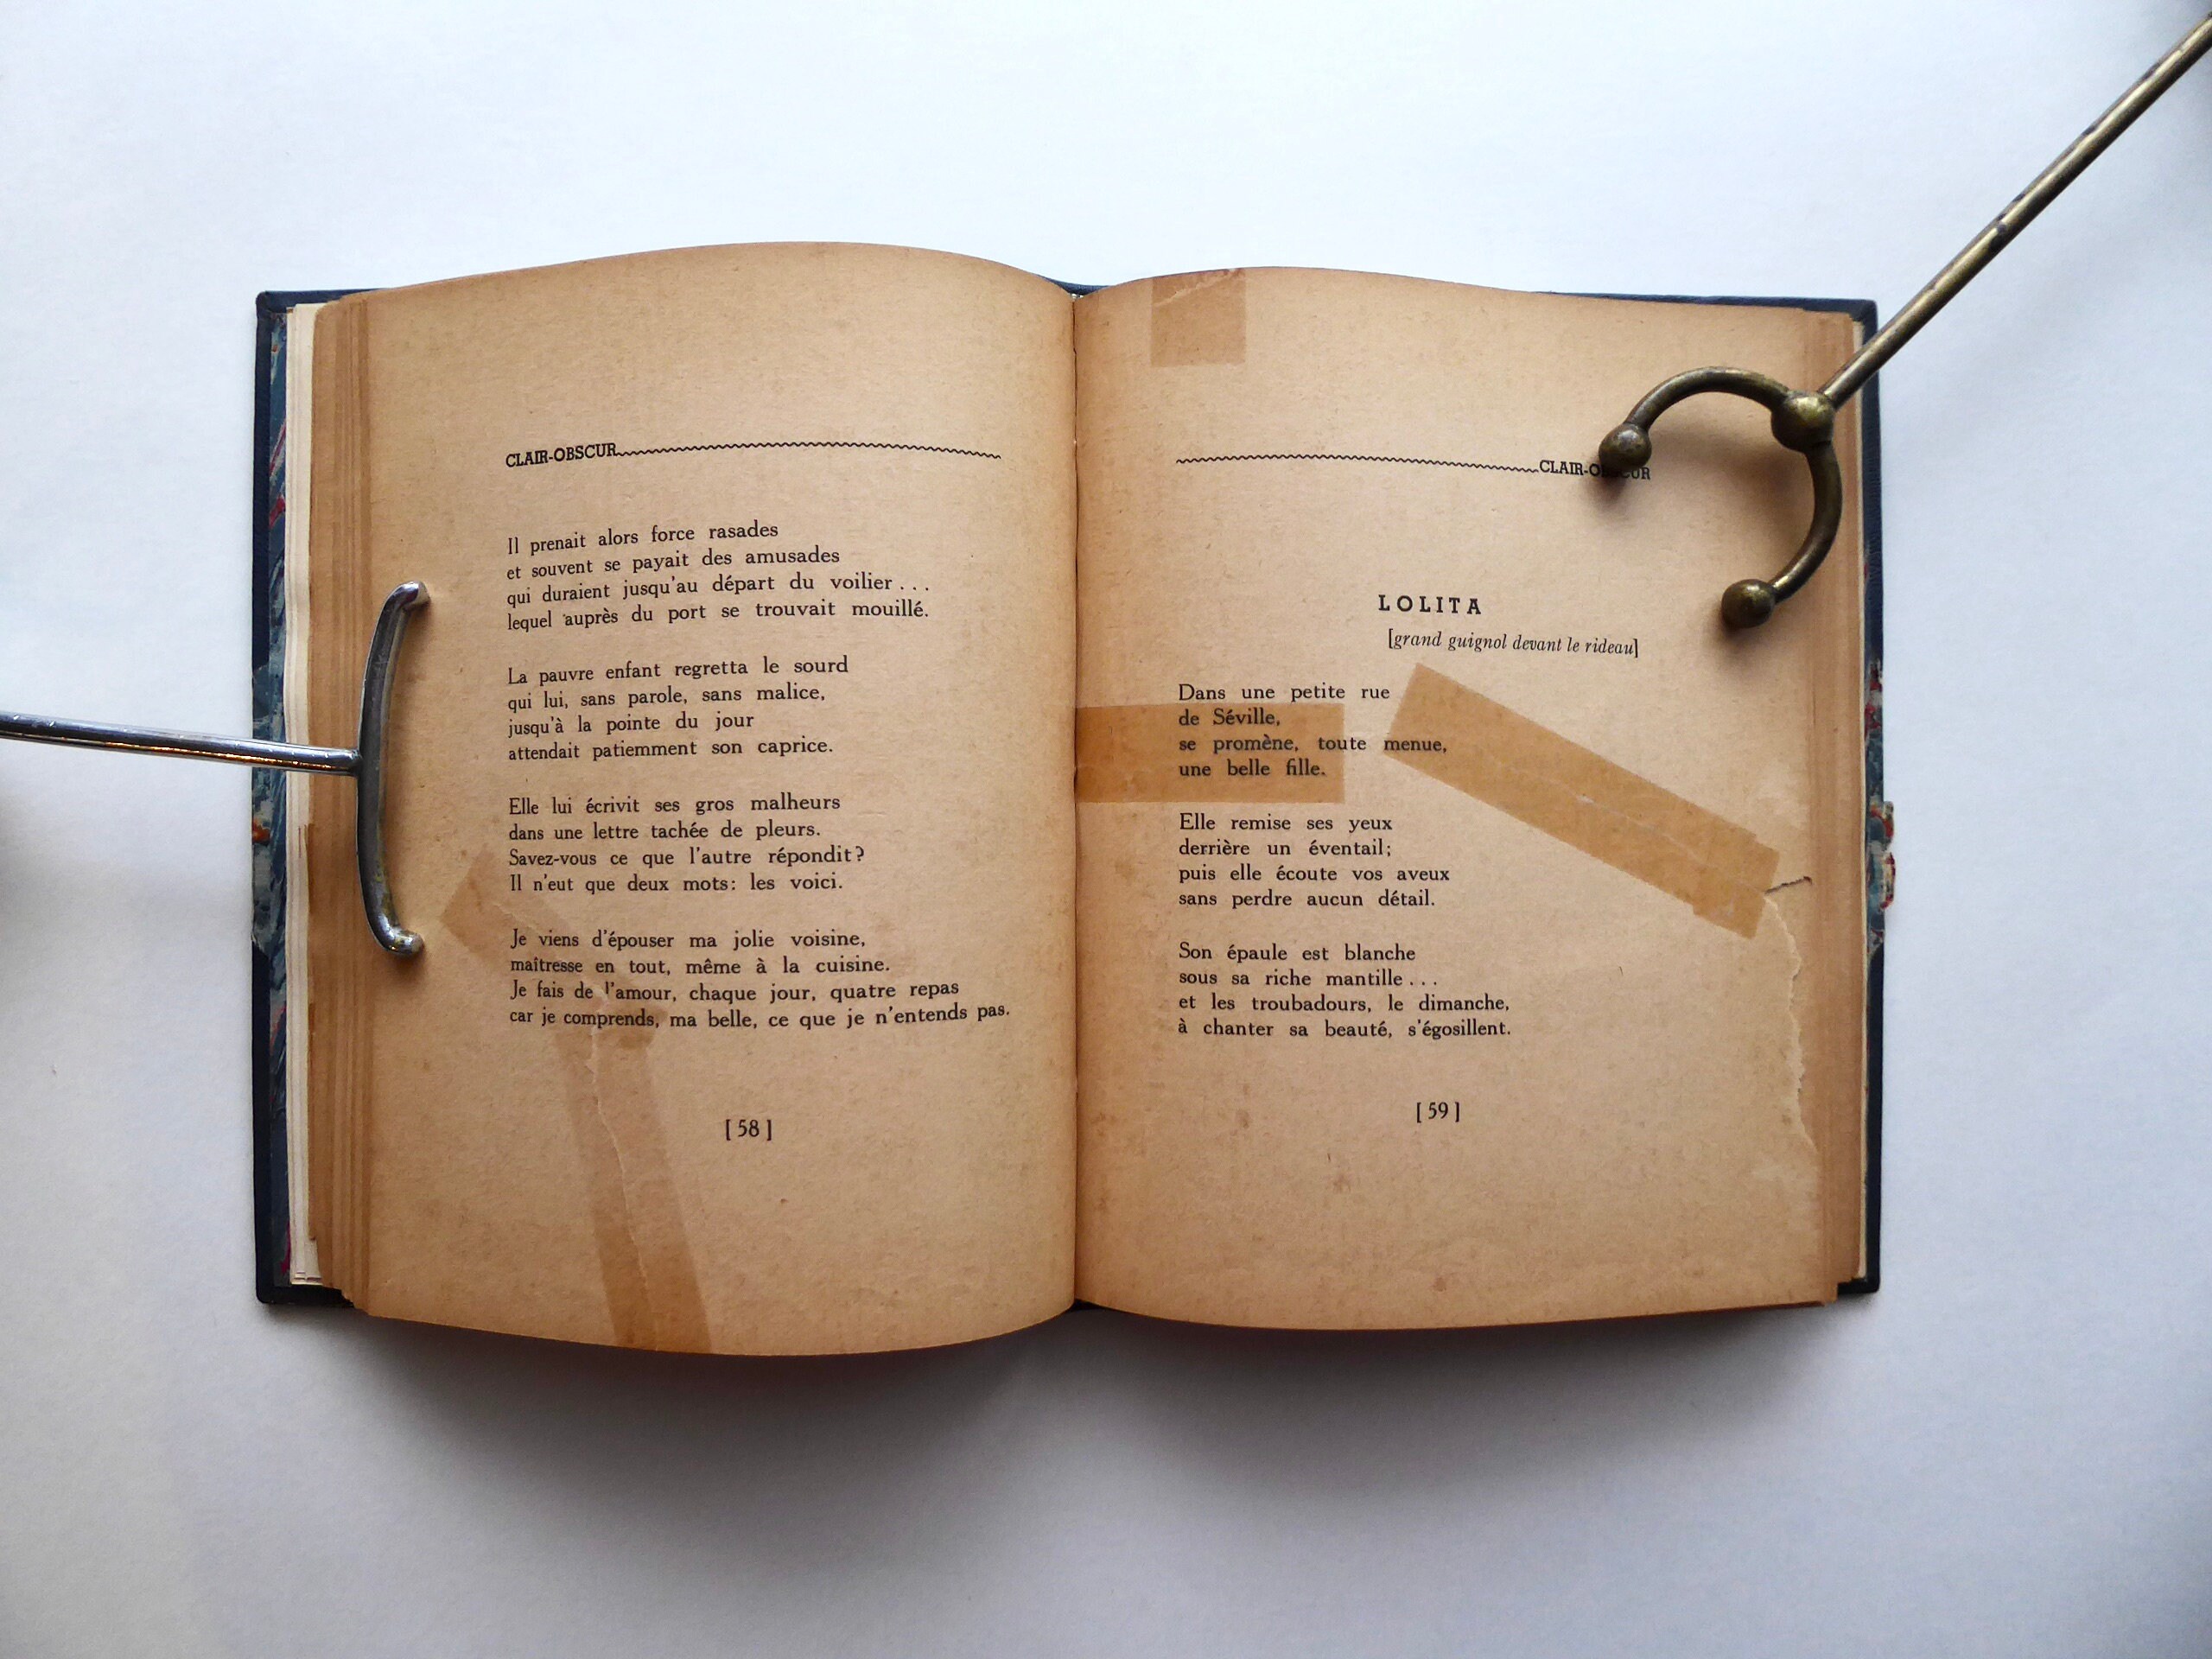 CLAIR-OBSCUR
Il prenait alors force rasades
et souvent se payait des amusades
qui duraient jusqu'au départ du voilier...
lequel auprès du port se trouvait mouillé.
La pauvre enfant regretta le sourd
qui lui, sans parole, sans malice,
jusqu'à la pointe du jour
attendait patiemment son caprice.
Elle lui écrivit ses gros malheurs
dans une lettre tachée de pleurs.
Savez-vous ce que l'autre répondit?
Il n'eut que deux mots: les voici.
Je viens d'épouser ma jolie voisine,
maîtresse en tout, même à la cuisine.
Je fais de l'amour, chaque jour, quatre repas
car je comprends, ma belle, ce que je n'entends pas.
[58]
CLAIR-OBSCUR
LOLITA
[grand guignol devant le rideau]
Dans une petite rue
de Séville,
se promène, toute menue,
une belle fille.
Elle remise ses yeux
derrière un éventail;
puis elle écoute vos aveux
sans perdre aucun détail.
Son épaule est blanche
sous sa riche mantille...
et les troubadours, le dimanche,
à chanter sa beauté, s'égosillent.
[59]